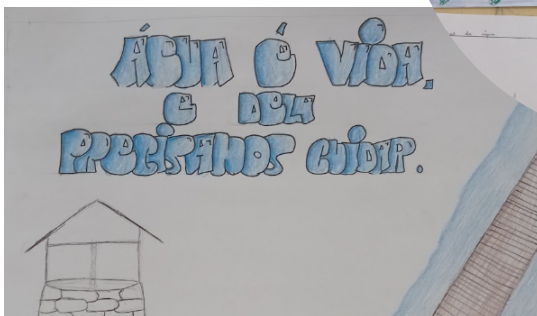 ÁGUA É VIDA,
E DELA
PRECISAMOS CUIDAR.